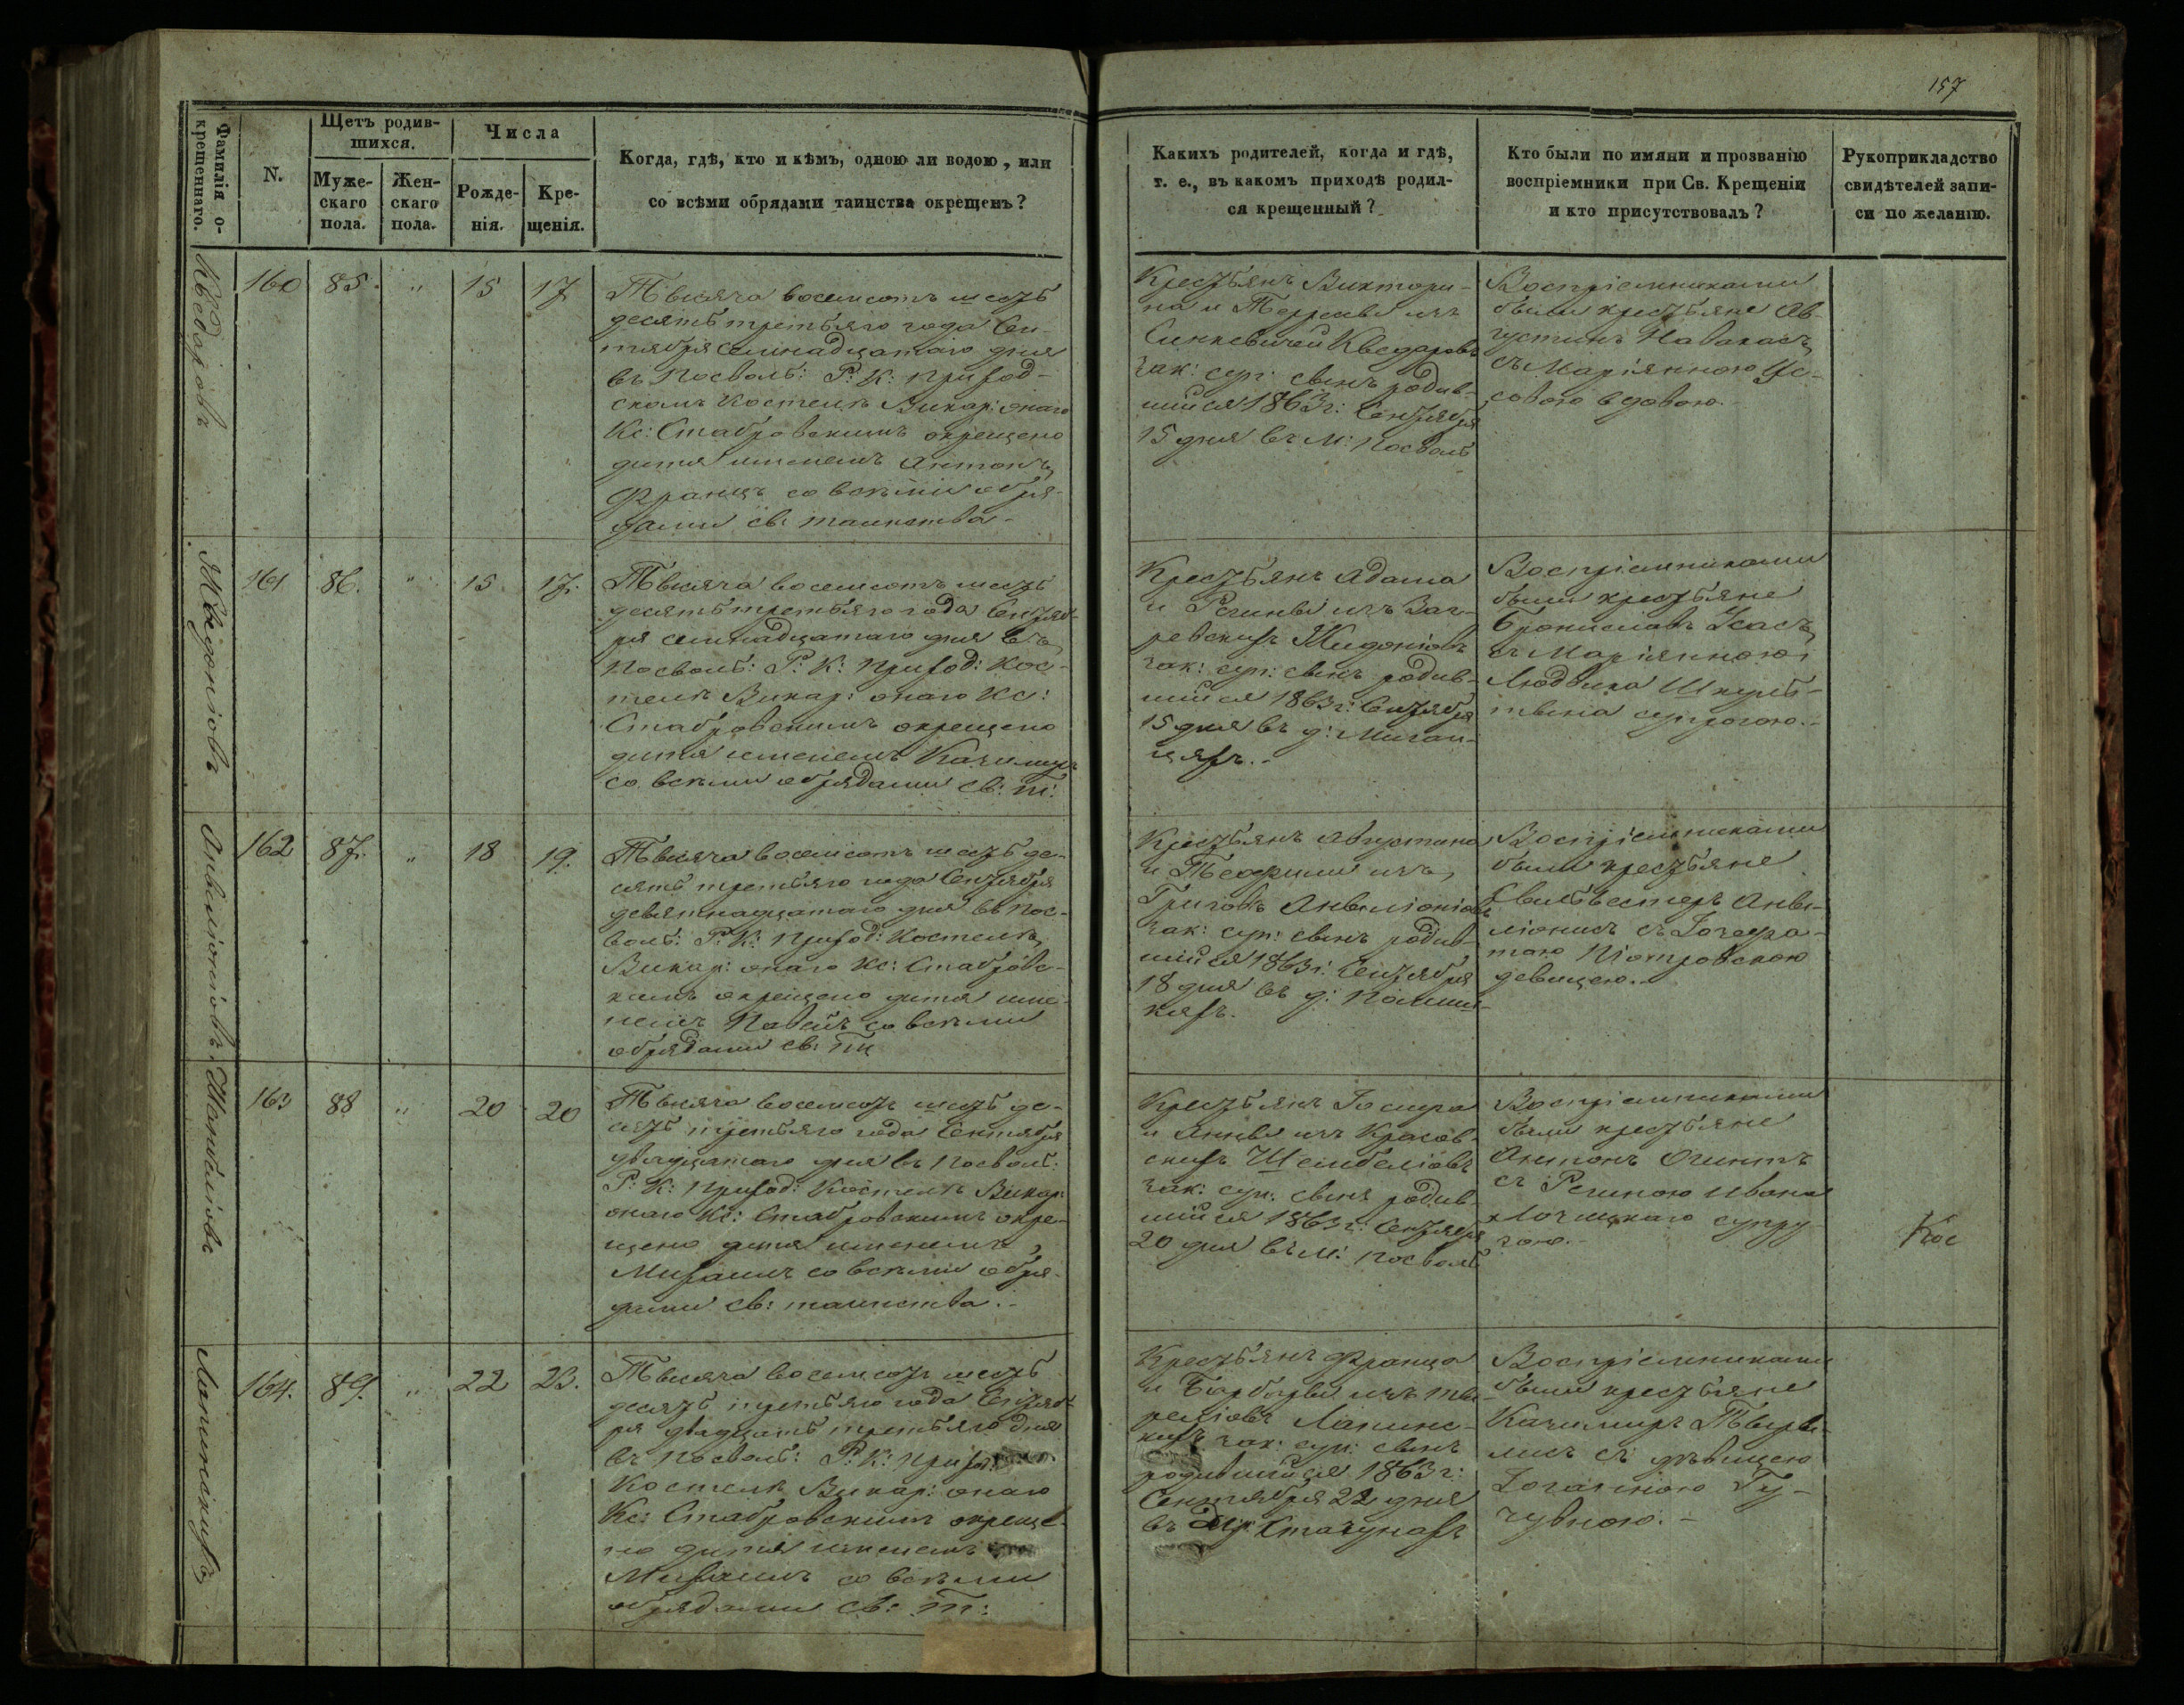 157
Фамилія о-
крещеннаго.
N.
Щетъ родив-
шихся.
Муже-
скаго
пола.
Жен-
скаго
пола.
Числа
Рожде-
нія.
Кре-
щенія.
Когда, гдѣ, кто и кѣмъ, одною ли водою, или
со всѣми обрядами таинства окрещенъ?
Какихъ родителей, когда и гдѣ,
т. е., въ какомъ приходѣ родил-
ся крещенный?
Кто были по имяни и прозванію
воспріемники при Св. Крещеніи
и кто присутствовалъ?
Рукоприкладство
свидѣтелей запи-
си по желанію.
Кведаровъ
160 85. " 15 17
Тысяча восемсотъ шесть
десятъ третьяго года Сен-
тября семнадцатаго дня
въ Посволь: Р: К: приход-
скомъ Костелѣ Викар: онаго
Кс: Стабровскимъ окрещено
дитя именемъ Антонъ,
Францъ со всѣми обря-
дами св: таинства.-
Крестьянъ Виктори-
на и Терезы изъ
Синкевичей Кведаровъ
зак: суп: сынъ родив-
шійся 1863 г: Сентября
15 дня въ м: Посволь
Воспріемниками
были крестьяне Ав-
густинъ Навакасъ,
съ Маріянною Ус-
совою вдовою.
Жидоніовъ
161 86. " 15 17.
Тысяча восемсотъ шесть
десятъ третьяго года Сентяб-
ря семнадцатаго дня въ
Посволь: Р: К: Приход: Кос-
телѣ Викар: онаго Кс:
Стабровскимъ окрещено
дитя именемъ Казимиръ
со всѣми обрядами св: т:
Крестьянъ Адама
и Регины изъ
Жидоніовъ
зак: суп: сынъ родив-
шійся 1863 г: Сентября
15 дня въ д:
Воспріемниками
были крестьяне
Брониславъ
съ Маріянною
Людвика
супругою.-
162 87. " 18 19.
Тысяча восемсотъ шесть де-
сятъ третьяго года Сентября
девятнадцатаго дня въ Пос-
воль: Р: К: Приход: Костелѣ,
Викар: онаго Кс: Стабровс-
кимъ окрещено дитя име-
немъ Павелъ со всѣми
обрядами св: тц
Крестьянъ Августина
и Теофили изъ
зак: суп: сынъ родив-
шійся 1863 г: Сентября
18 дня въ д:
Воспріемниками
были крестьяне
Сильвестеръ
съ Іозефа-
тою Піотровскою
девицею.-
163 88 " 20 20
Тысяча восемсотъ шесть де-
сятъ третьяго года Сентября
двадцатаго дня въ Посволь:
Р: К: Приход: Костелѣ Викар:
онаго Кс: Стабровскимъ окре-
щено дитя именемъ,
Михаилъ со всѣми обря-
дами св: таинства.-
Крестьянъ Іосифа
и Анны изъ Красов-
скихъ
зак: суп: сынъ родив-
шійся 1863 г: Сентября
20 дня въ м: Посволь
Воспріемниками
были крестьяне
Антонъ
съ Региною Ивана
супру-
гою.-
Кос
Лапинскихъ
164. 89. " 22 23.
Тысяча восемсотъ шесть
десятъ третьяго года Сентяб-
ря двадцать третьяго дня
въ Посволь: Р: К: Приход:
Костелѣ Викар: онаго
Кс: Стабровскимъ окреще-
но дитя именемъ
Михаилъ со всѣми
обрядами св: т:
Крестьянъ Франца
и Барбары изъ
Лапинс-
кихъ зак: суп: сынъ
родившійся 1863 г:
Сентября 22 дня
въ
Воспріемниками
были крестьяне
Казимиръ
съ дѣвицею